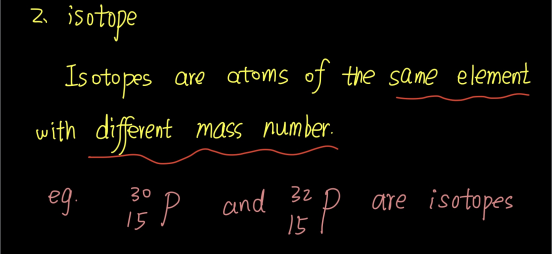 2、isotope
Isotopes are atoms of the same element
with different mass number.
eg. ³⁰₁₅P and ³²₁₅P are isotopes